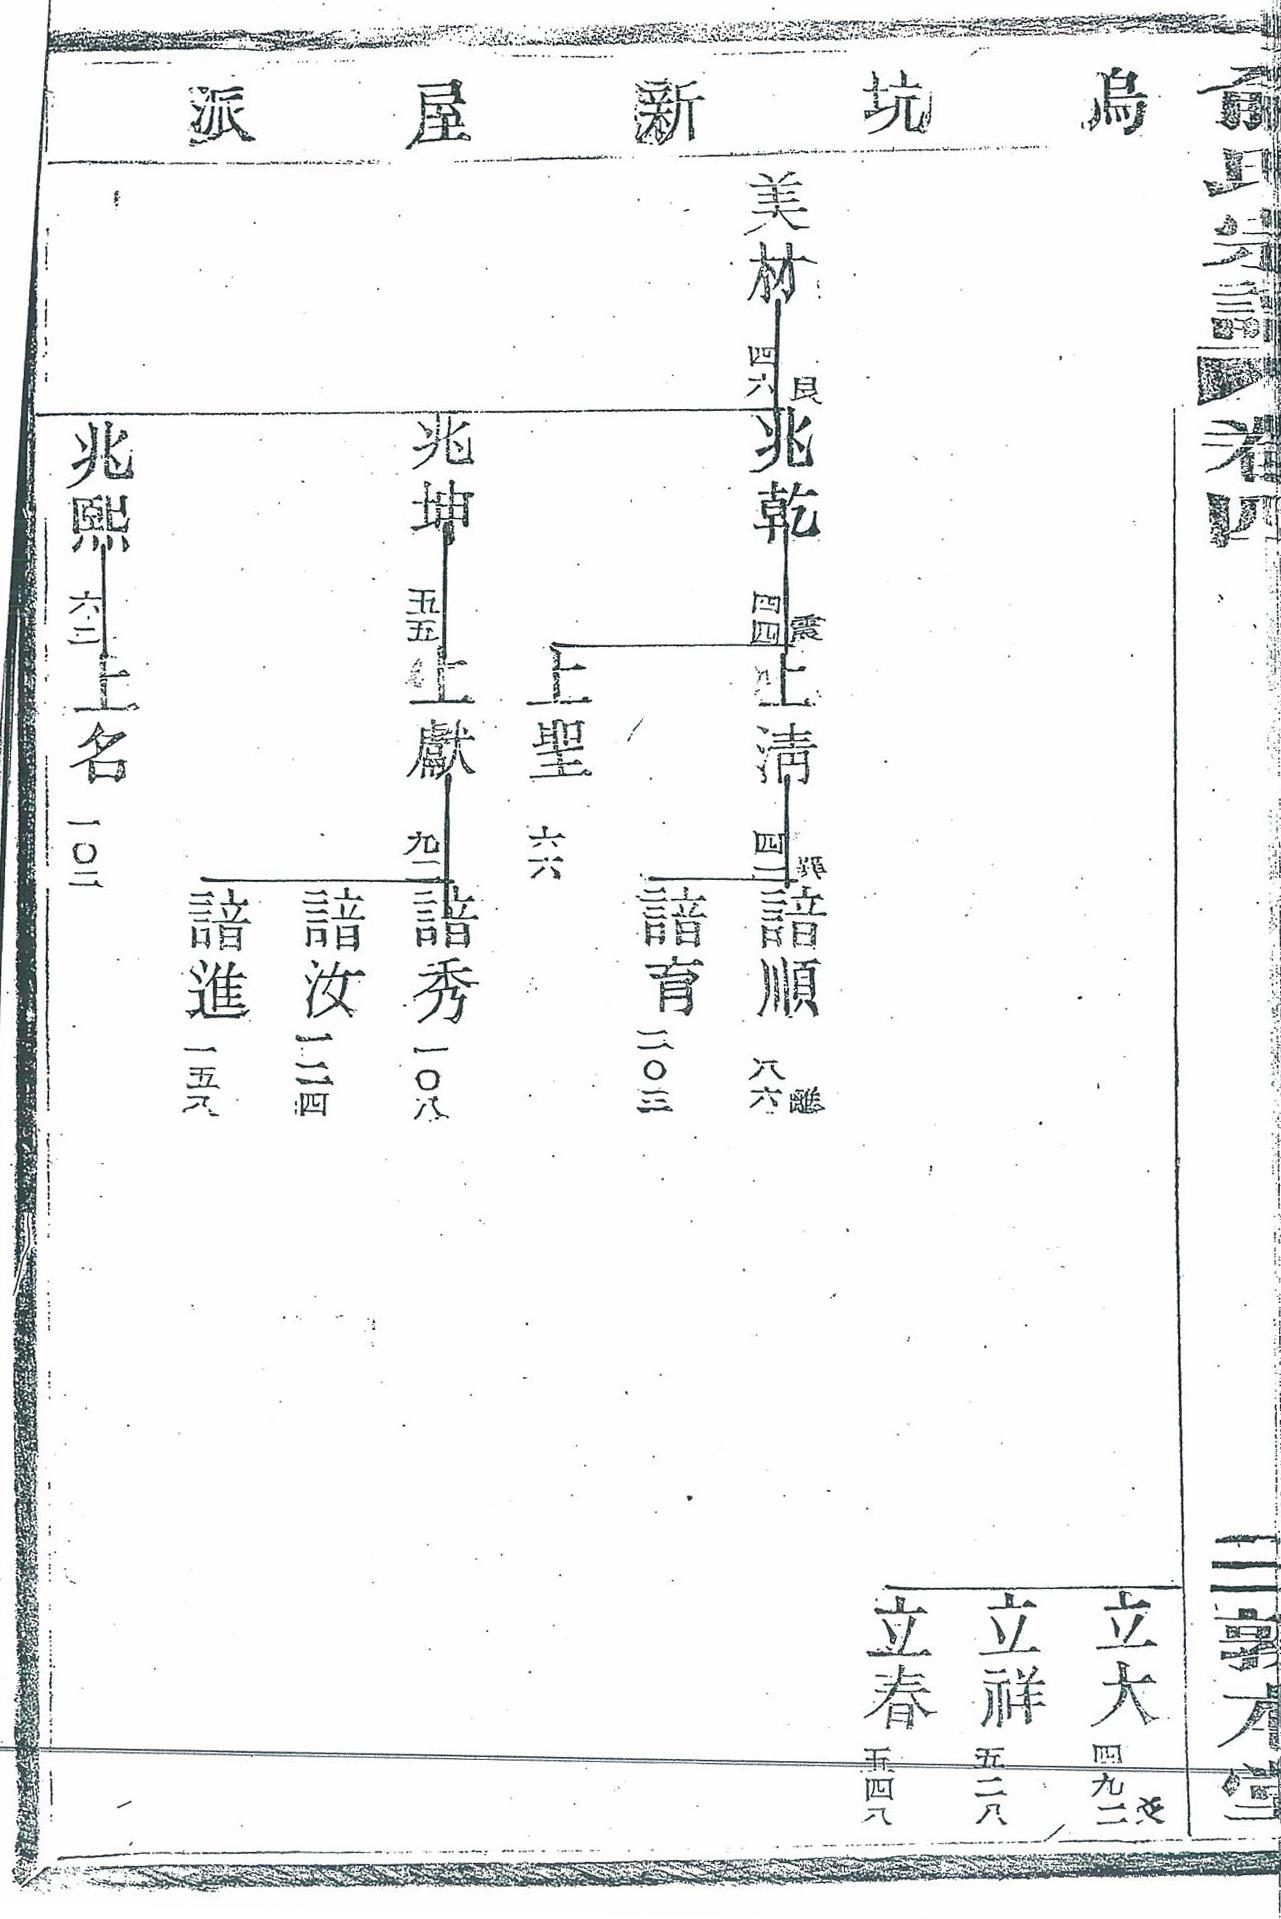 俞氏宗譜
卷四
三敦本堂
烏坑新屋派
美材
四六
艮
兆乾
四四
震
兆坤
五五
兆熙
上清
四二
巽
上聖
六六
上獻
九二
上名
一〇二
諳順
八六
離
諳育
二〇三
諳秀
一〇八
諳汝
諳進
一五八
立大
四九二
立祥
五二八
立春
五四八